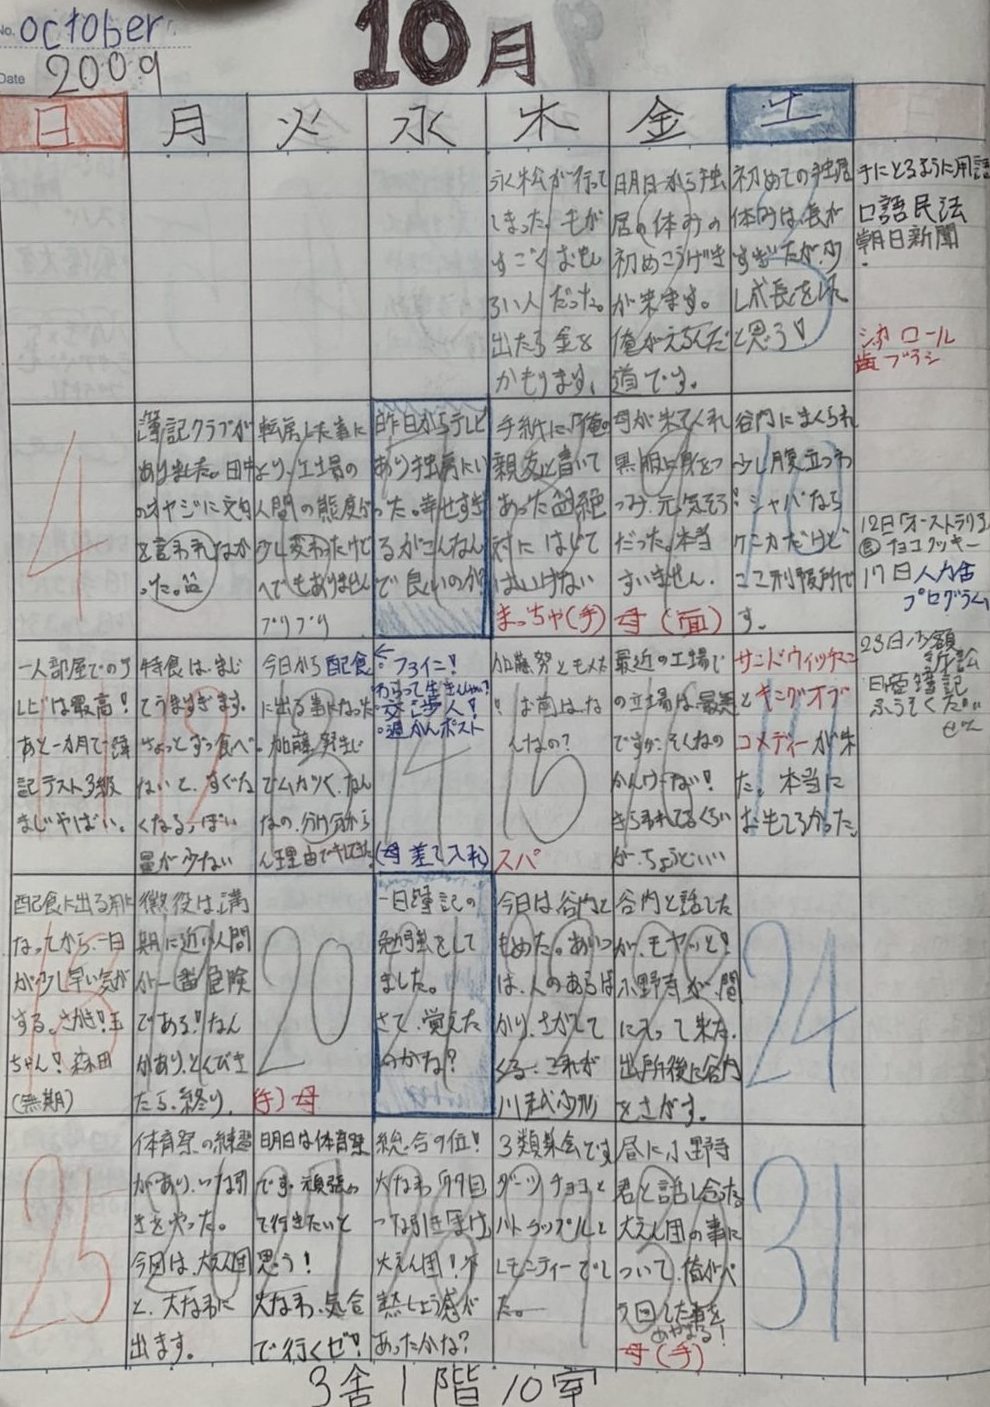 No. October
Date 2009
10月
日 月 火 水 木 金 土
永松が行って
しまった。もが
すごくおもし
ろい人だった。
出たら金を
かもります、
明日から独
居の休みの
初めこうげき
が来ます。
俺がえらんだ
道です。
初めての独居
休みは、長が
すぎたが、少
し成長をした
と思う!
手にとるように用語
口語民法
朝日新聞
ロール
歯ブラシ
4
簿記クラブが
ありました。田中
のオヤジに文句
を言われなか
った。
転房した事に
より、工場の
人間の態度が
少し変わったけど
へでもありません
プリプリ
昨日からテレビ
あり独房にい
った。幸せすぎ
るがこんなん
で良いのか?
手紙に「俺の
親友と書いて
あった 絶
対に はじて
はいけない
まっちゃ(手)
母が来てくれ
黒服に身をつ
つみ、元気そう
だった。本当
すいません.
母(面)
谷内にまくられ
少し腹立つわ
!シャバなら
ケンカだけど
ここ刑務所で
す。
12日「オーストラリア
チョコクッキー
17日 人力舎
プログラム
一人部屋での
は最高!
あと一カ月で簿
記テスト3級
まじやばい。
特食は、まじ
でうますぎます。
ちょっとずつ食べ
ないと、すぐな
くなる。ぽい
量が少ない
今日から配食
に出る事になった
。加藤
でムカつく、なん
なの、分け分から
ん理由でキレてきた。
交じ歩人!
・週かんポスト
(母差し入れ)
加藤努ともめた
! お前は、な
んなの?
スパ
最近の工場で
の立場は、最悪
ですが、そんなの
かんけーない!
きらわれてるくらい
が、ちょうどいい
サンドウィッチマン
とキングオブ
コメディーが来
た。本当に
おもしろかった。
23日 少額
訴訟
日商簿記
ふうそくだ
配食に出る用に
なってから、一日
が少し早い気が
する。さかき!玉
ちゃん! 森田
(無期)
懲役は、満
期に近い人間
が一番危険
である!なん
かあり、とくびき
たら、終り.
20
(手)母
一日簿記の
勉強をして
ました。
さて、覚えた
のかな?
今日は、谷内と
もめた。あいつ
は、人のあらば
かり、さがして
くる、これが
川越少刑
谷内と話した
が、モヤッと!
小野寺が、間
に入って来た.
出所後に谷内
をさがす。
24
25
体育祭の練習
があり、つな引
きをやった。
今回は、大なわ
に
出ます。
明日は体育祭
です。頑張っ
て行きたいと
思う!
大なわ、気合
で行くぜ!
総合9位!
大なわ 99回
つな引き「まけ」
大えん団!
熱しょう感が
あったかな?
3類集会です
ダーツ チョコと
バトラップルと
レモンティーでし
た。
昼に小野寺
君と話し合った
大えん団の事に
ついて、俺がバ
カ回した事を
あやまる!
母(手)
31
3舎1階10室